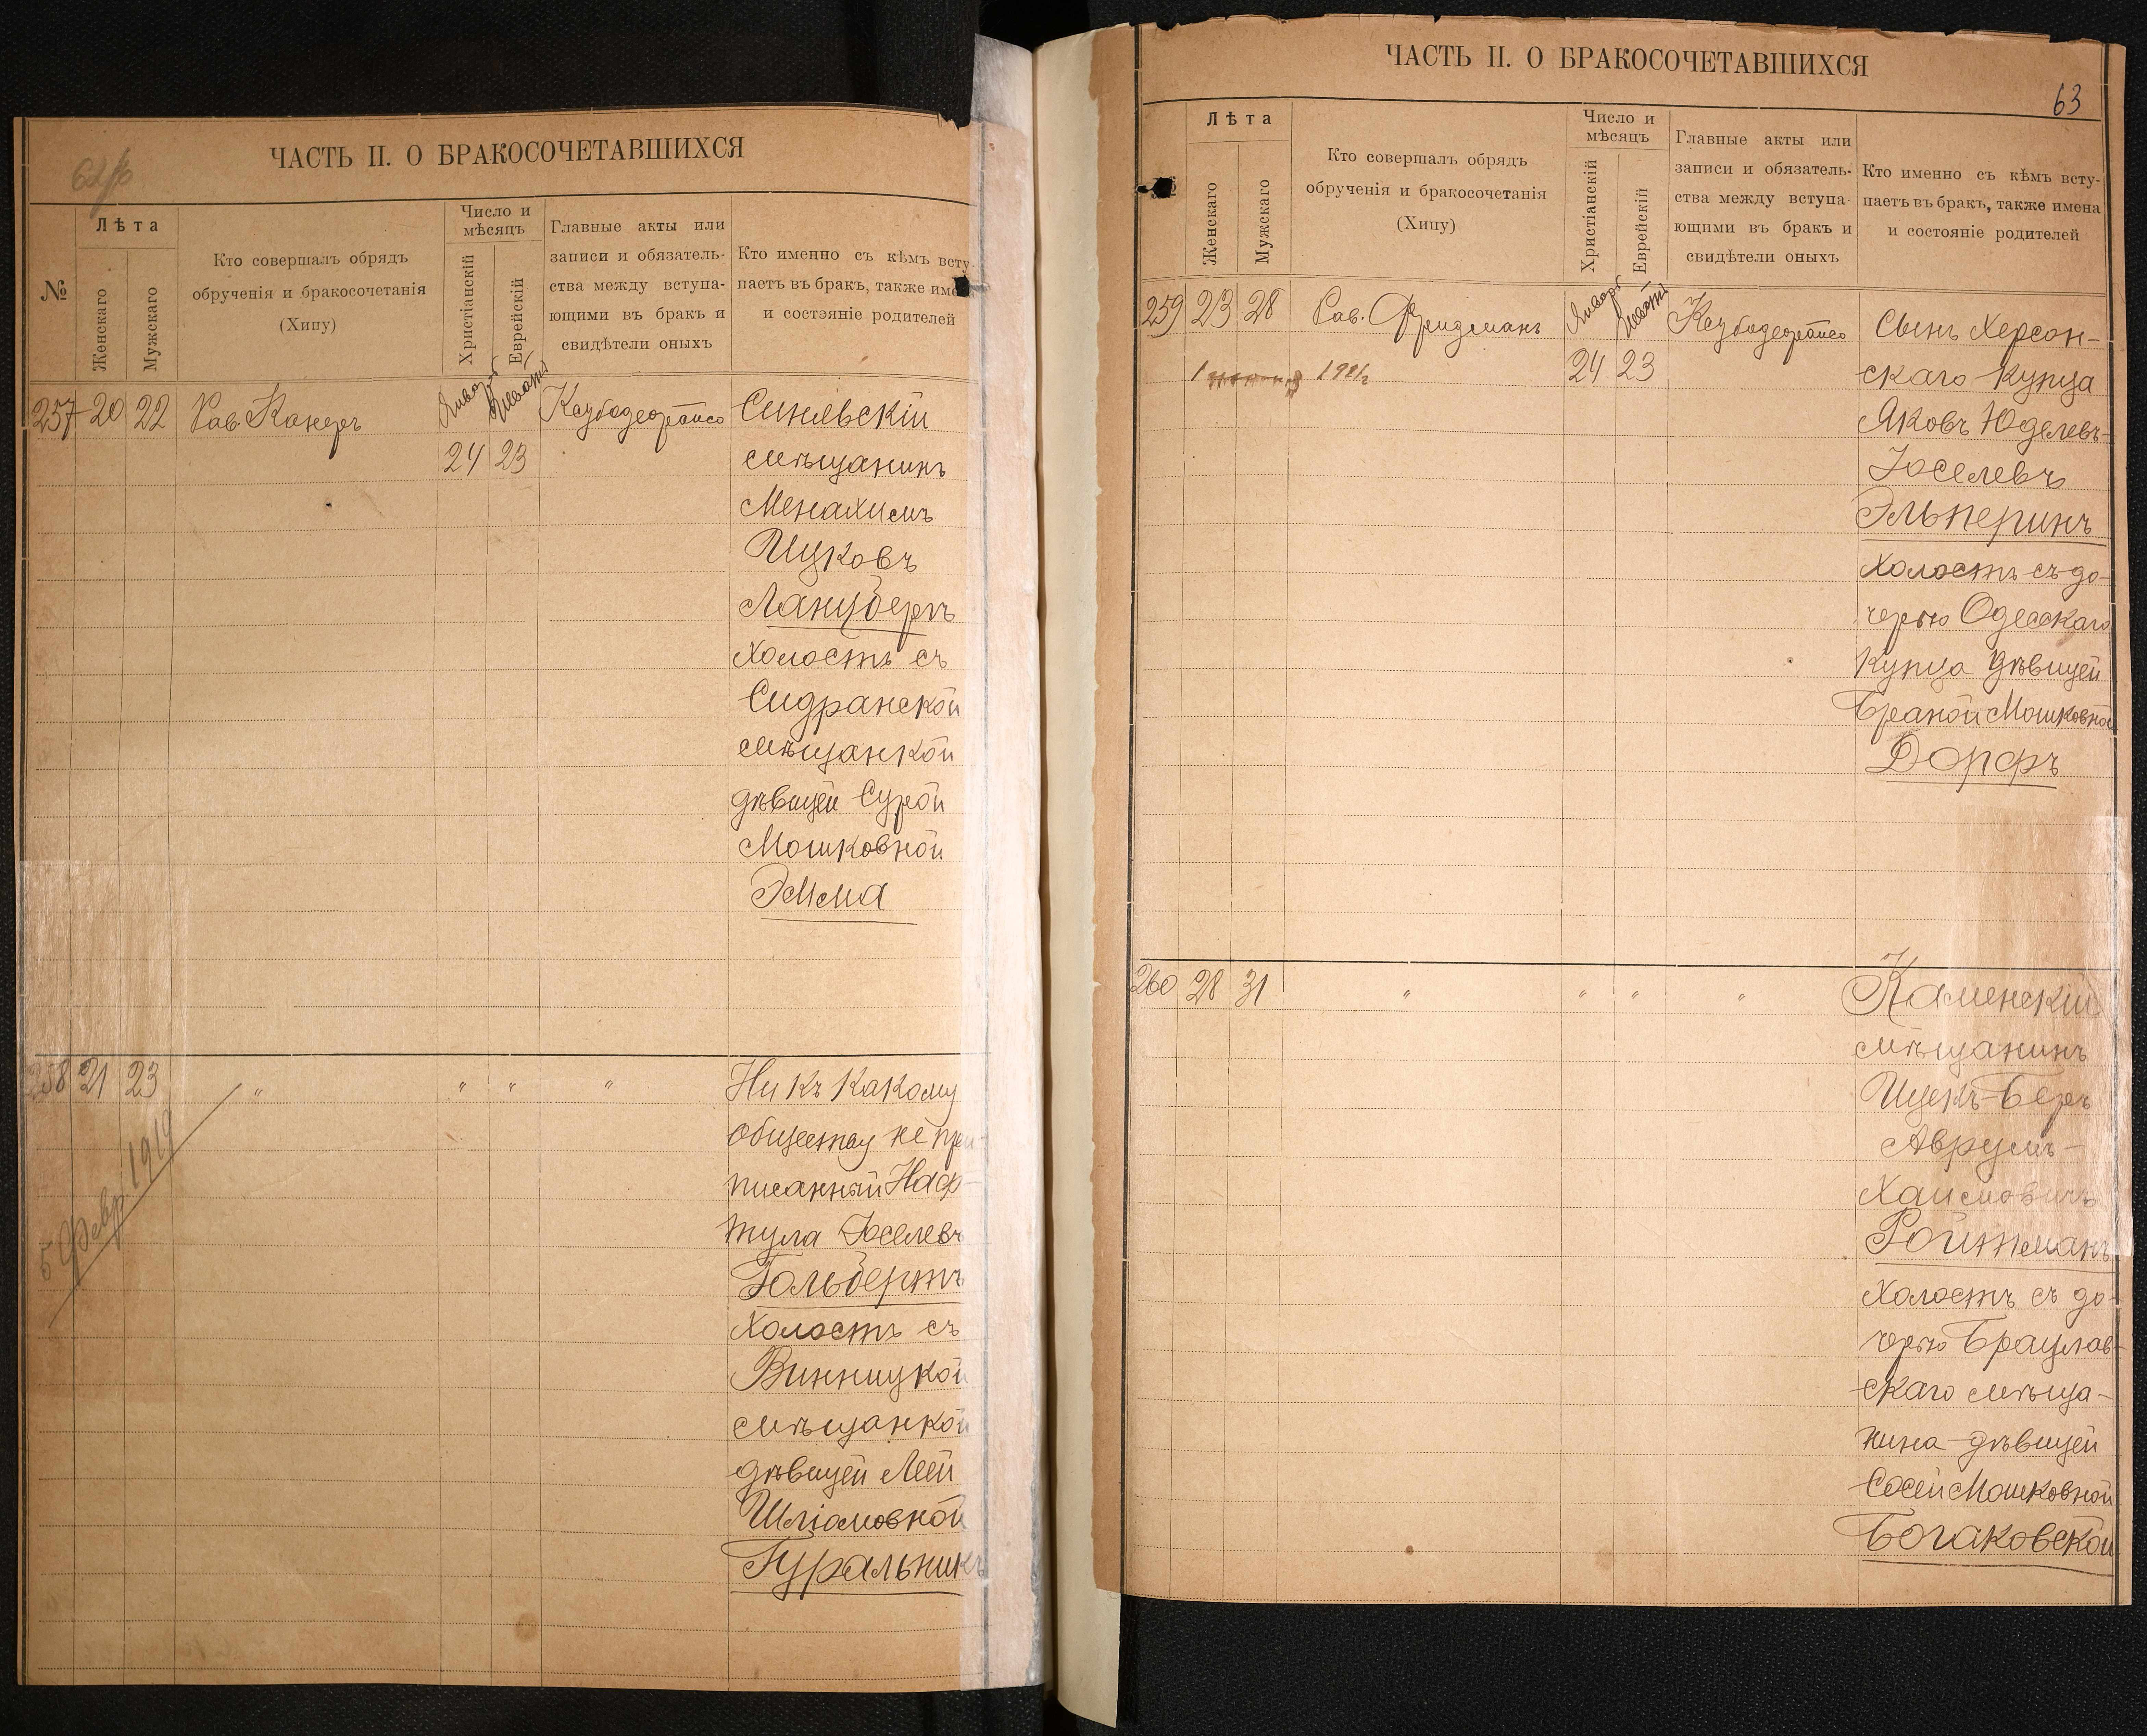 62/б
ЧАСТЬ II. О БРАКОСОЧЕТАВШИХСЯ
№
Лѣта
Женскаго
Мужскаго
Кто совершалъ обрядъ
обрученія и бракосочетанія
(Хипу)
Число и
мѣсяцъ
Христіанскій
Еврейскій
Главные акты или
записи и обязатель-
ства между вступа-
ющими въ бракъ и
свидѣтели оныхъ
Кто именно съ кѣмъ всту
паетъ въ бракъ, также име
и состояніе родителей
257 20 22 Рав. Канеръ
Января
24 23
Синявскій
мѣщанинъ
Менахимъ
Ицковъ
Ланцбергъ
холостъ съ
Сидранской
мѣщанкой
дѣвицей Сурой
Мошковной
Эмма
258 21 23 " " " "
5 Февр 1919
Ни къ какому
обществу не при
писанный Наф-
тула Іоселевъ
Гольбертъ
холостъ съ
Винницкой
мѣщанкой
дѣвицей Леей
Шліомовной
Гуральникъ
ЧАСТЬ II. О БРАКОСОЧЕТАВШИХСЯ
63
Лѣта
Женскаго
Мужскаго
Кто совершалъ обрядъ
обрученія и бракосочетанія
(Хипу)
Число и
мѣсяцъ
Христіанскій
Еврейскій
Главные акты или
записи и обязатель-
ства между вступа
ющими въ бракъ и
свидѣтели оныхъ
Кто именно съ кѣмъ всту-
паетъ въ бракъ, также имена
и состояніе родителей
259 23 28 Рав. Фридманъ
Января
24 23
Сынъ Херсон-
скаго купца
Яковъ Юделевъ-
Іоселевъ
Эльперинъ
холостъ съ до-
черью Одесскаго
купца дѣвицей
Браной Мошковной
Дорфъ
260 28 31 " " " "
Каменскій
мѣщанинъ
Ицекъ-Беръ
Аврумъ-
Хаимовичъ
Ройтманъ
холостъ съ до-
черью Брацлав-
скаго мѣща-
нина дѣвицей
Сосей Мошковной
Богаковской